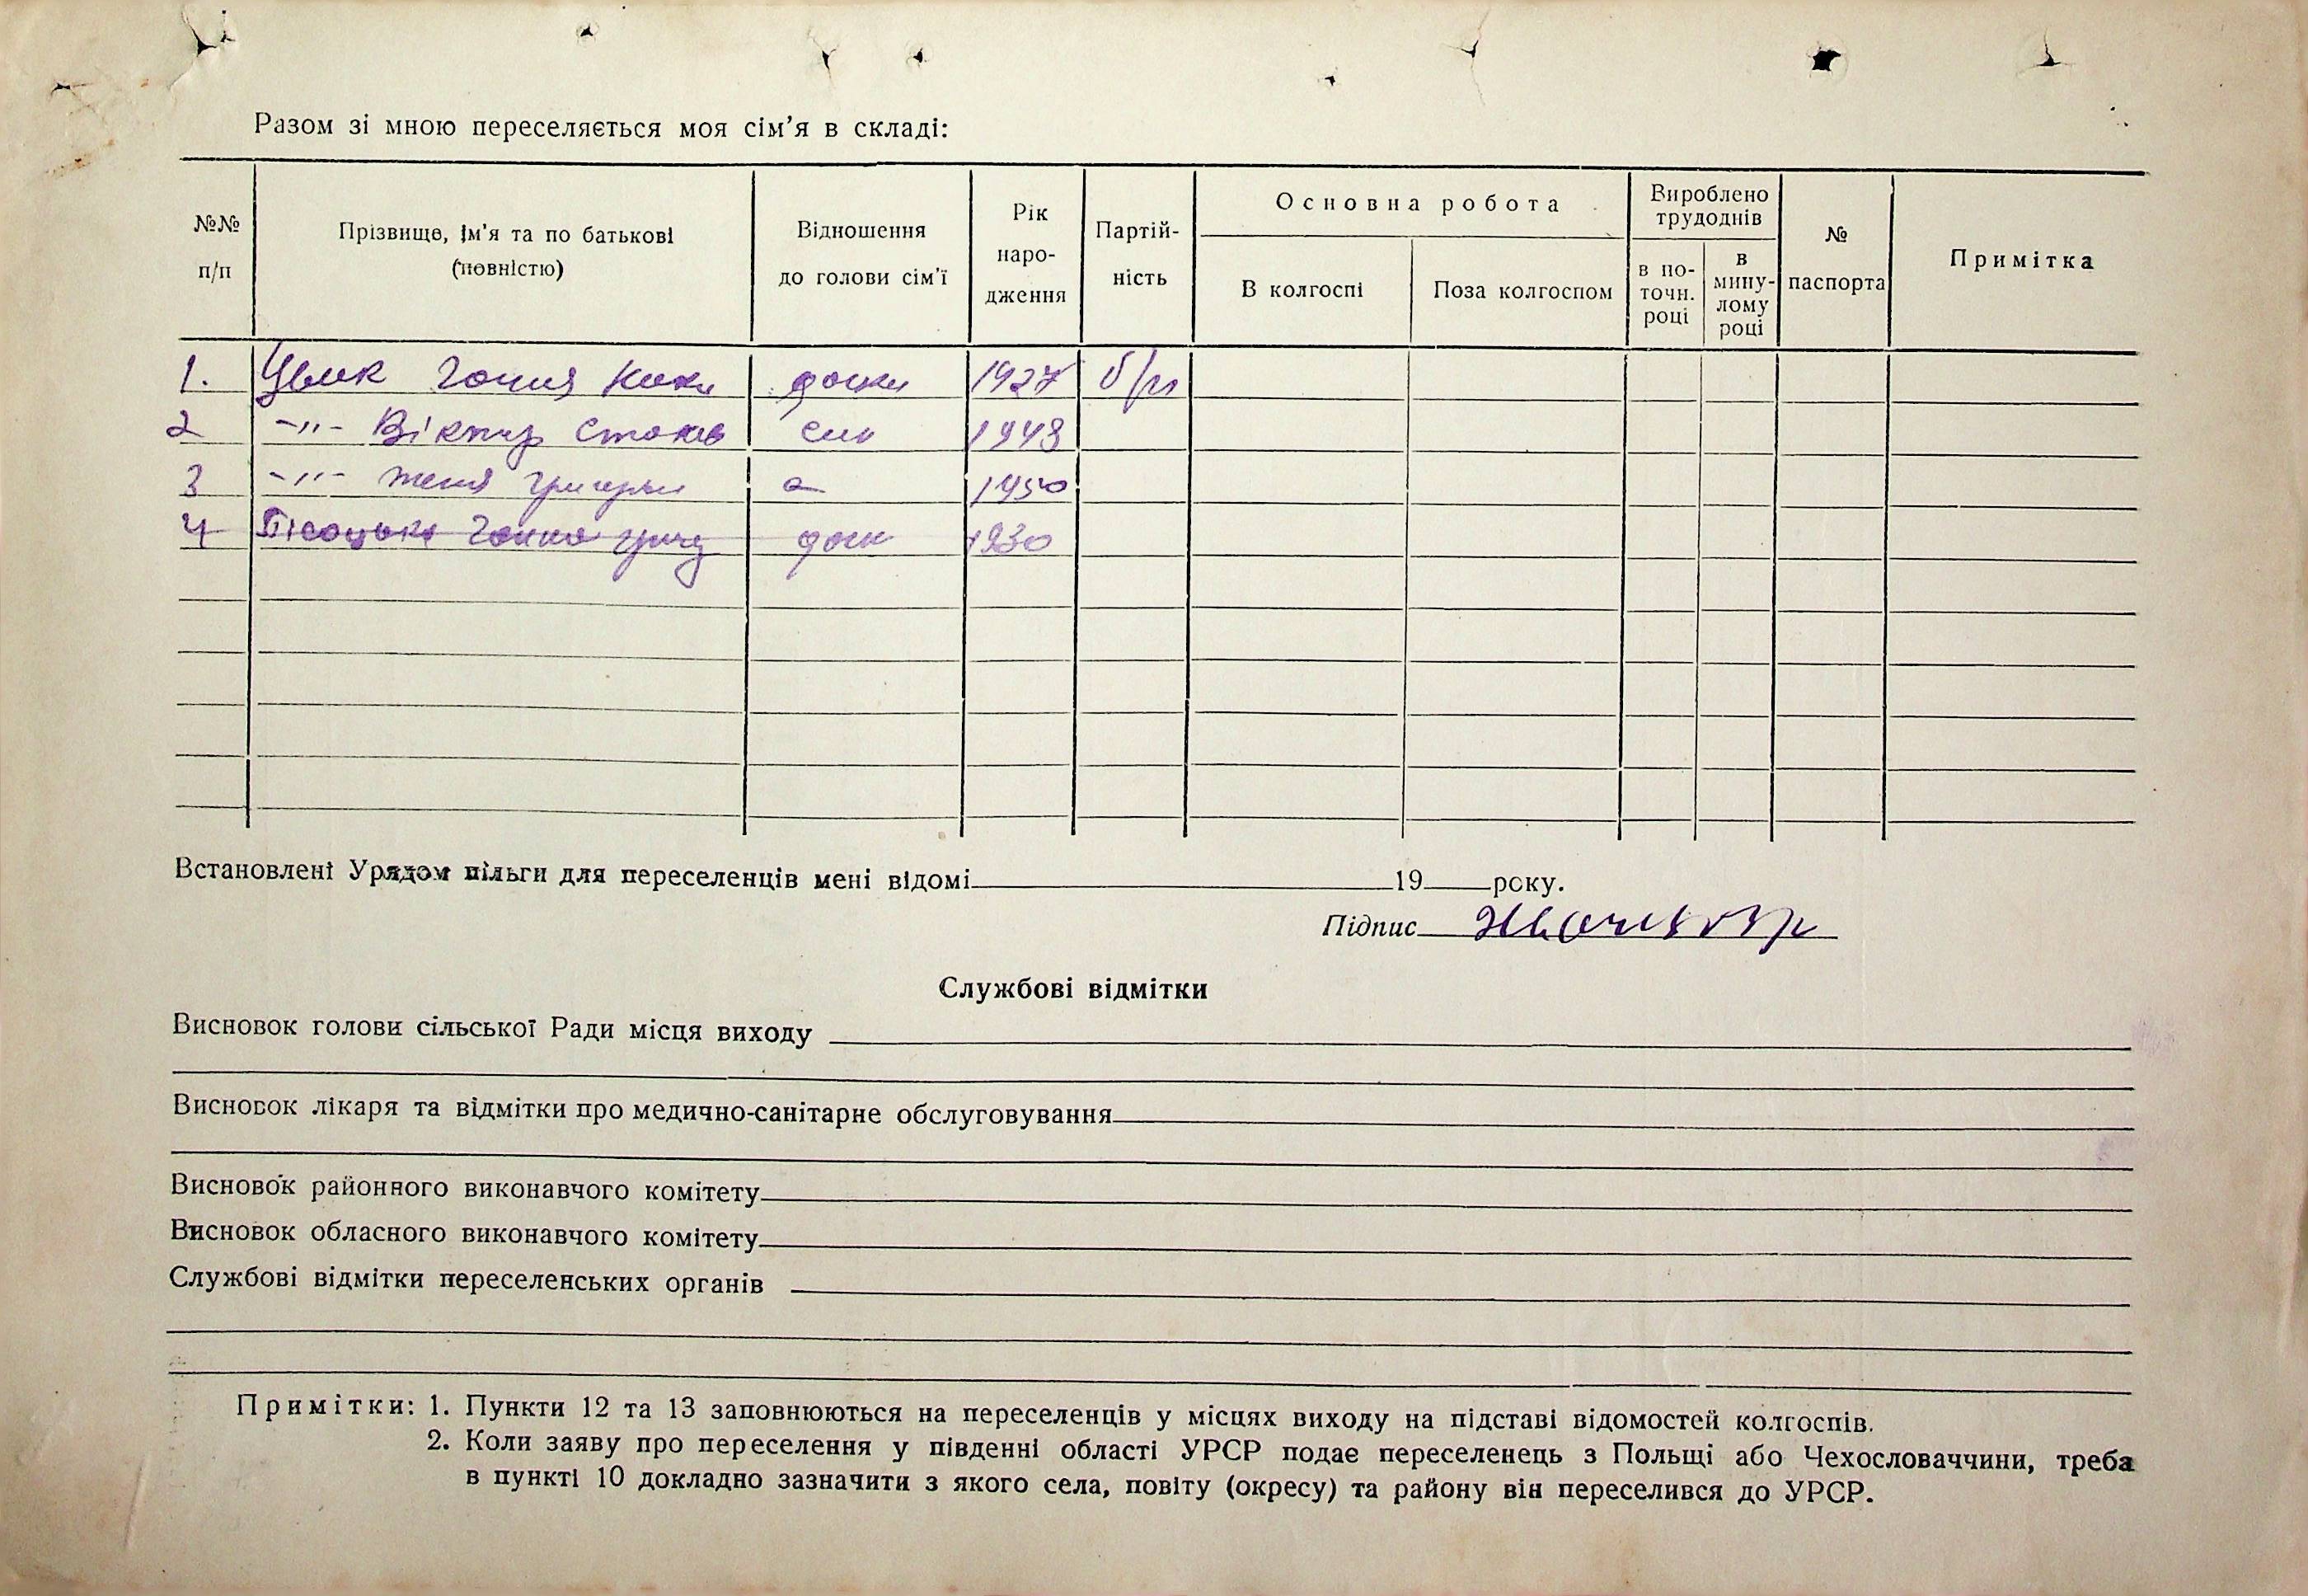 Разом зі мною переселяється моя сім’я в складі:
№№ п/п
Прізвище, ім’я та по батькові (повністю)
Відношення до голови сім’ї
Рік народження
Партійність
Основна робота
В колгоспі
Поза колгоспом
Вироблено трудоднів
в поточн. році
в минулому році
№ паспорта
Примітка
1. Цвик 1927 б/п
2 -"- Віктор син 1948
3 -"- Женя 1950
4 Пісоцька Ганна дочк 1930
Встановлені Урядом пільги для переселенців мені відомі 19 року.
Підпис
Службові відмітки
Висновок голови сільської Ради місця виходу
Висновок лікаря та відмітки про медично-санітарне обслуговування
Висновок районного виконавчого комітету
Висновок обласного виконавчого комітету
Службові відмітки переселенських органів
Примітки: 1. Пункти 12 та 13 заповнюються на переселенців у місцях виходу на підставі відомостей колгоспів.
2. Коли заяву про переселення у південні області УРСР подає переселенець з Польщі або Чехословаччини, треба
в пункті 10 докладно зазначити з якого села, повіту (окресу) та району він переселився до УРСР.